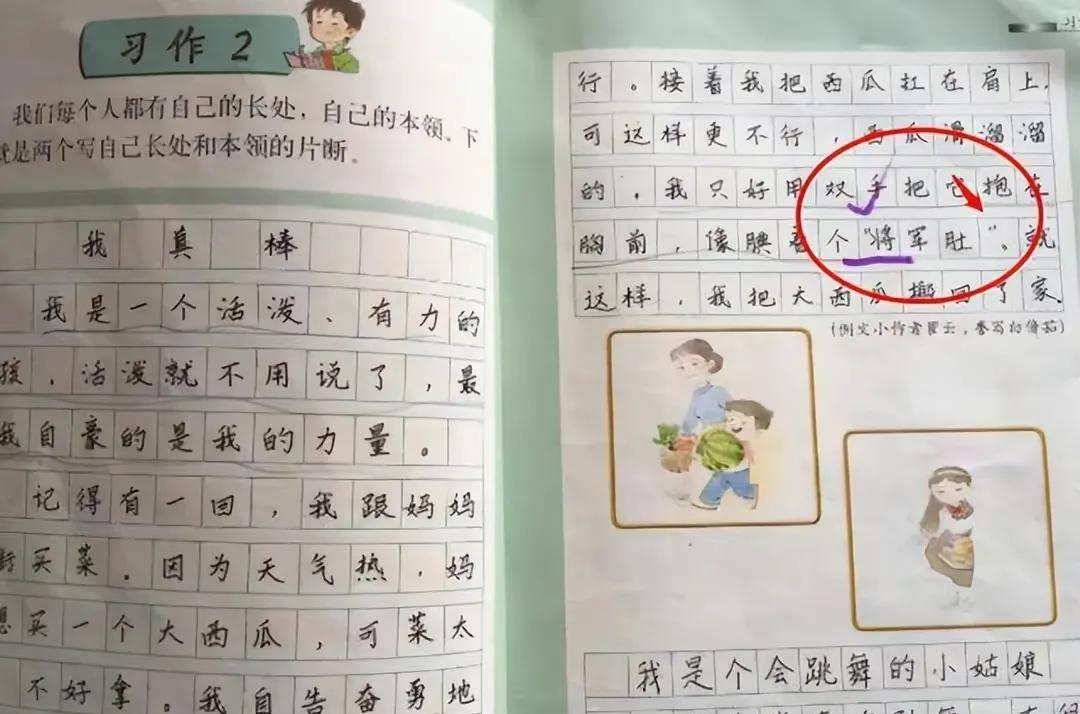 习作2
我们每个人都有自己的长处，自己的本领。下
就是两个写自己长处和本领的片断。
我真棒
我是一个活泼、有力的
孩，活泼就不用说了，最
我自豪的是我的力量。
记得有一回，我跟妈妈
买菜。因为天气热，妈
想买一个大西瓜，可菜太
不好拿。我自告奋勇地
行。接着我把西瓜扛在肩上，
可这样更不行，西瓜滑溜溜
的，我只好用双手把它抱在
胸前，像腆着个“将军肚”。就
这样，我把大西瓜搬回了家。
(例文小作者瞿云，
我是个会跳舞的小姑娘